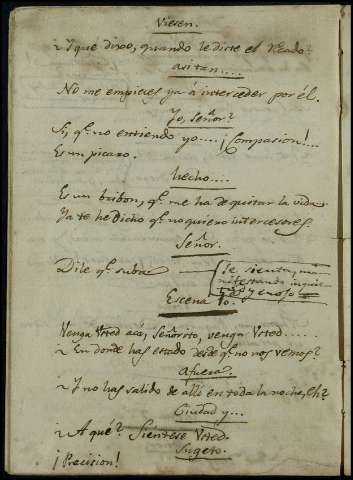 Viesen.
¿Y que dixo, quando le diste el recado?
asitan....
No me empieces ya á interceder por él.
Yo, Señor?
Si, q.e no entiendo yo.... ¡Compasion!...
Es un picaro.
hecho....
Es un bribon, q.e me ha de quitar la vida
Ya te he dicho q.e no quiero intercesores.
Señor.
Dile q.e suba
Se sienta, ma
nifestando inquie
tud y enojo
Escena 10.
Venga Usted acá, Señorito, venga Usted....
¿En donde has estado desde q.e no nos vemos?
afuera.
¿Y no has salido de allí en toda la noche, Eh?
Ciudad y...
¿A qué? Sientese Usted.
Sugeto.
¡Precision!